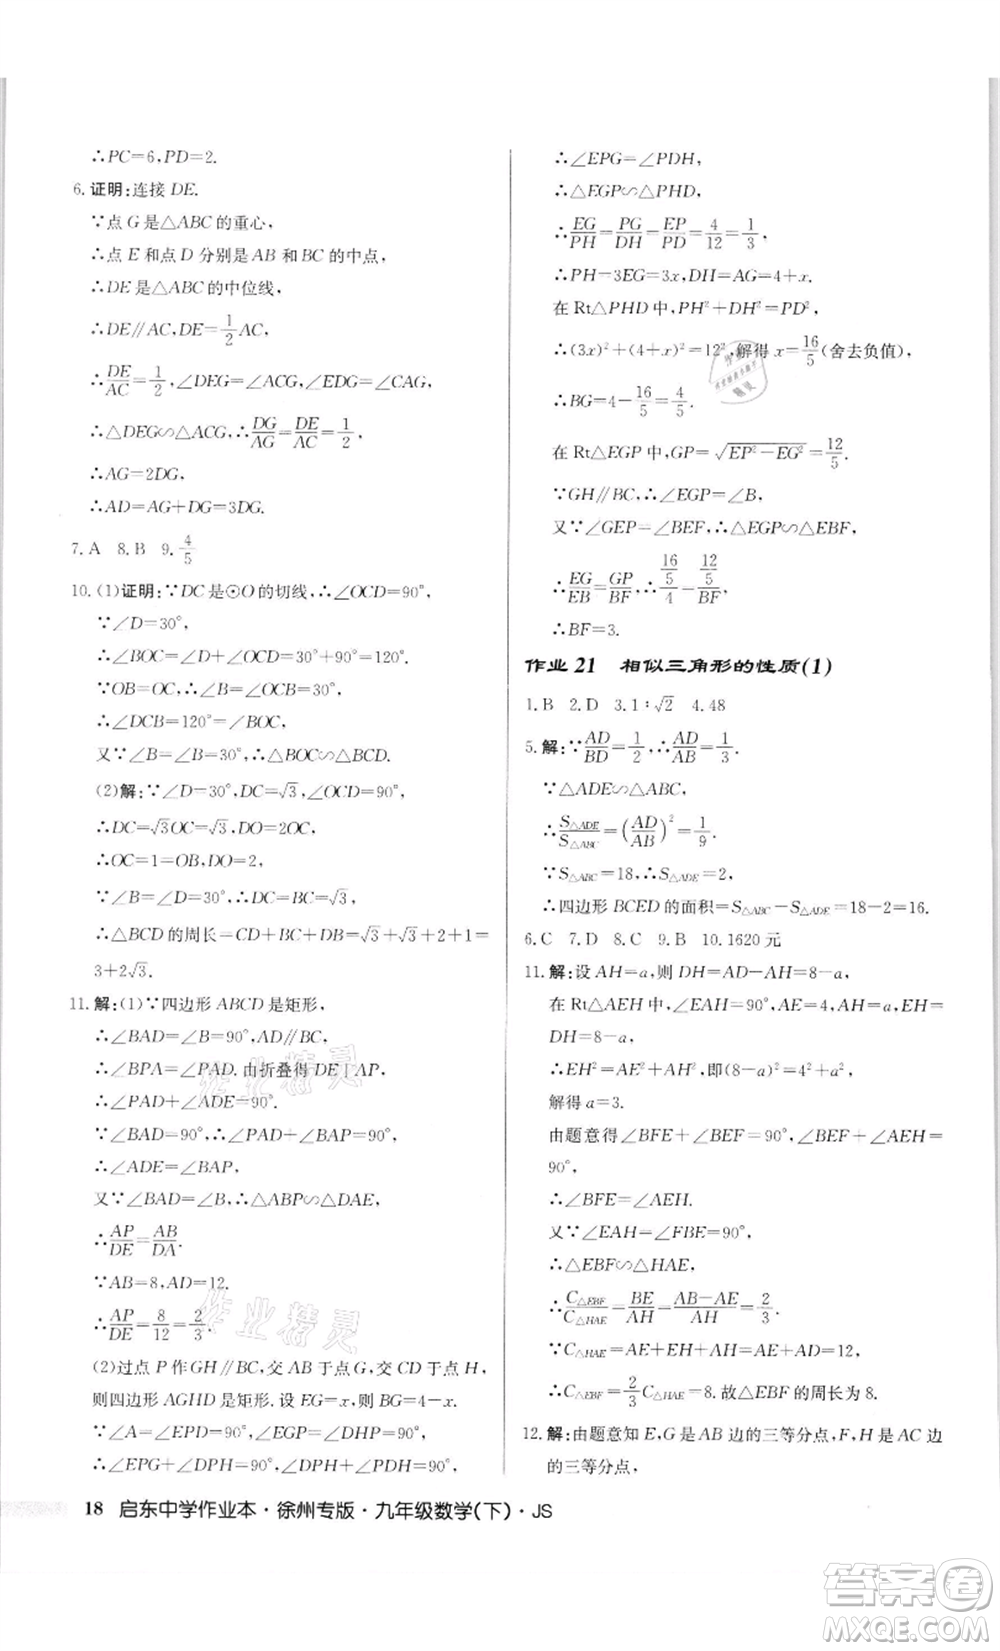 ∴PC=6,PD=2.
6.证明:连接 DE.
∵点 G 是△ABC 的重心,
∴点 E 和点 D 分别是 AB 和 BC 的中点,
∴DE 是△ABC 的中位线,
∴DE∥AC,DE=1/2AC,
∴DE/AC=1/2,∠DEG=∠ACG,∠EDG=∠CAG,
∴△DEG∽△ACG,∴DG/AG=DE/AC=1/2,
∴AG=2DG,
∴AD=AG+DG=3DG.
7.A 8.B 9.4/5
10.(1)证明:∵DC 是⊙O 的切线,∴∠OCD=90°,
∵∠D=30°,
∴∠BOC=∠D+∠OCD=30°+90°=120°.
∵OB=OC,∴∠B=∠OCB=30°,
∴∠DCB=120°=∠BOC,
又∵∠B=∠B=30°,∴△BOC∽△BCD.
(2)解:∵∠D=30°,DC=√3,∠OCD=90°,
∴DC=√3OC=√3,DO=2OC,
∴OC=1=OB,DO=2,
∵∠B=∠D=30°,∴DC=BC=√3,
∴△BCD 的周长=CD+BC+DB=√3+√3+2+1=
3+2√3.
11.解:(1)∵四边形 ABCD 是矩形,
∴∠BAD=∠B=90°,AD∥BC,
∴∠BPA=∠PAD.由折叠得 DE⊥AP,
∴∠PAD+∠ADE=90°.
∵∠BAD=90°,∴∠PAD+∠BAP=90°,
∴∠ADE=∠BAP,
又∵∠BAD=∠B,∴△ABP∽△DAE,
∴AP/DE=AB/DA.
∵AB=8,AD=12,
∴AP/DE=8/12=2/3.
(2)过点 P 作 GH∥BC,交 AB 于点 G,交 CD 于点 H,
则四边形 AGHD 是矩形.设 EG=x,则 BG=4-x.
∵∠A=∠EPD=90°,∠EGP=∠DHP=90°,
∴∠EPG+∠DPH=90°,∠DPH+∠PDH=90°,
∴∠EPG=∠PDH,
∴△EGP∽△PHD,
∴EG/PH=PG/DH=EP/PD=4/12=1/3,
∴PH=3EG=3x,DH=AG=4+x.
在 Rt△PHD 中,PH²+DH²=PD²,
∴(3x)²+(4+x)²=12²,解得 x=16/5(舍去负值),
∴BG=4-16/5=4/5,
在 Rt△EGP 中,GP=√(EP²-EG²)=12/5.
∵GH∥BC,∴∠EGP=∠B,
又∵∠GEP=∠BEF,∴△EGP∽△EBF,
∴EG/EB=GP/BF,∴(16/5)/4=(12/5)/BF,
∴BF=3.
作业 21 相似三角形的性质(1)
1.B 2.D 3.1∶√2 4.48
5.解:∵AD/BD=1/2,∴AD/AB=1/3.
∵△ADE∽△ABC,
∴S△ADE/S△ABC=(AD/AB)²=1/9.
∵S△ABC=18,∴S△ADE=2,
∴四边形 BCED 的面积=S△ABC-S△ADE=18-2=16.
6.C 7.D 8.C 9.B 10.1620 元
11.解:设 AH=a,则 DH=AD-AH=8-a,
在 Rt△AEH 中,∠EAH=90°,AE=4,AH=a,EH=
DH=8-a,
∴EH²=AE²+AH²,即(8-a)²=4²+a²,
解得 a=3.
由题意得∠BFE+∠BEF=90°,∠BEF+∠AEH=
90°,
∴∠BFE=∠AEH.
又∵∠EAH=∠FBE=90°,
∴△EBF∽△HAE,
∴C△EBF/C△HAE=BE/AH=AB-AE/AH=2/3.
∵C△HAE=AE+EH+AH=AE+AD=12,
∴C△EBF=2/3C△HAE=8.故△EBF 的周长为 8.
12.解:由题意知 E,G 是 AB 边的三等分点,F,H 是 AC 边
的三等分点,
18 启东中学作业本·徐州专版·九年级数学(下)·JS
作业精灵
作业精灵
答案圈
MXQE.COM